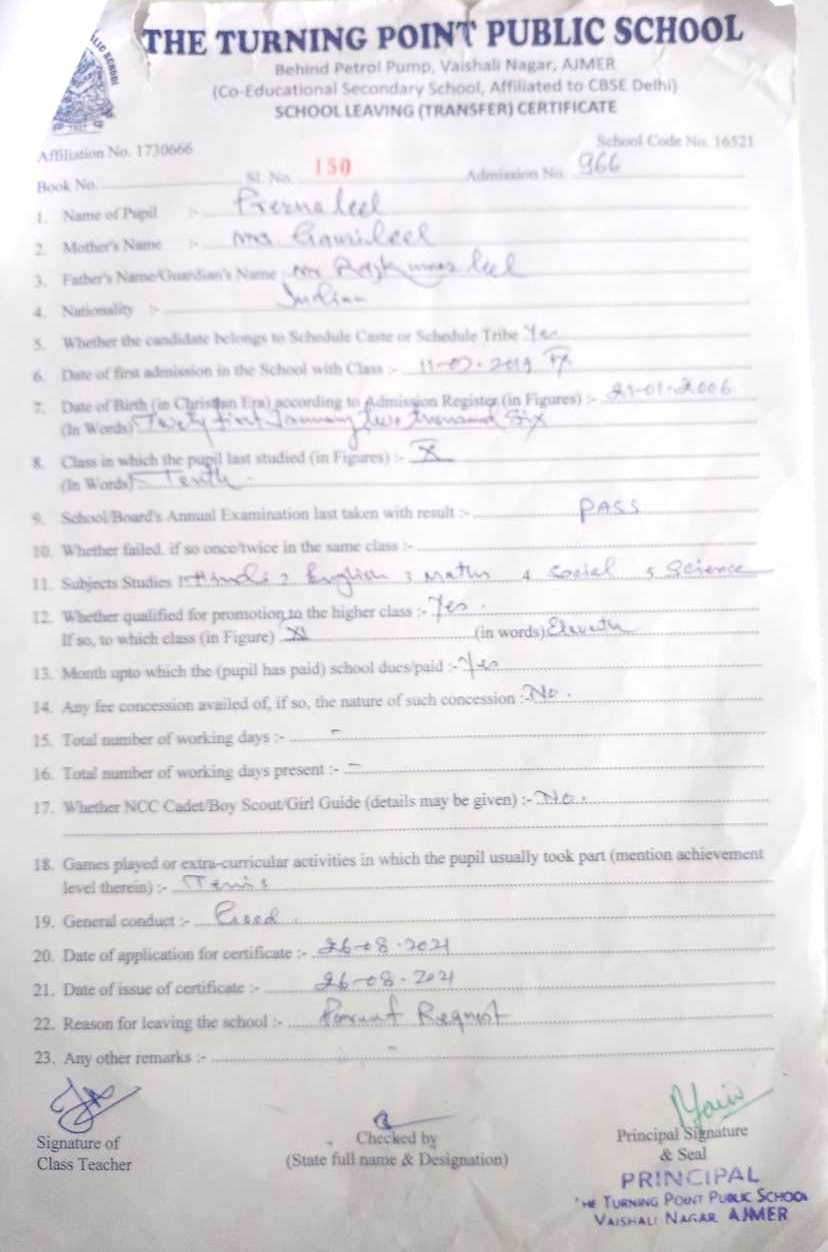 THE TURNING POINT PUBLIC SCHOOL
Behind Petrol Pump, Vaishali Nagar, AJMER
(Co-Educational Secondary School, Affiliated to CBSE Delhi)
SCHOOL LEAVING (TRANSFER) CERTIFICATE
Affiliation No. 1730666 School Code No. 16521
Book No. Sl. No. 150 Admission No. 966
1. Name of Pupil :- Prerna leel
2. Mother's Name :- Mrs leel
3. Father's Name/Guardian's Name Mr Rajkumar leel
4. Nationality :- Indian
5. Whether the candidate belongs to Schedule Caste or Schedule Tribe Yes
6. Date of first admission in the School with Class :- 2019
7. Date of Birth (in Christian Era) according to Admission Register (in Figures) :- 21-01-2006
(In Words) Twenty first January Two thousand Six
8. Class in which the pupil last studied (in Figures) :- X
(In Words) Tenth
9. School/Board's Annual Examination last taken with result :- PASS
10. Whether failed, if so once/twice in the same class :-
11. Subjects Studies 1 Hindi 2 English 3 Maths 4 Social 5 Science
12. Whether qualified for promotion to the higher class :- Yes.
If so, to which class (in Figure) XI (in words) Eleventh
13. Month upto which the (pupil has paid) school dues/paid :- Yes
14. Any fee concession availed of, if so, the nature of such concession :- No.
15. Total number of working days :- -
16. Total number of working days present :- -
17. Whether NCC Cadet/Boy Scout/Girl Guide (details may be given) :- No.
18. Games played or extra-curricular activities in which the pupil usually took part (mention achievement
level therein) :- Tennis
19. General conduct :- Good
20. Date of application for certificate :- 26-08-2021
21. Date of issue of certificate :- 26-08-2021
22. Reason for leaving the school :- Parent Request
23. Any other remarks :- -
Signature of Checked by Principal Signature
Class Teacher (State full name & Designation) & Seal
PRINCIPAL
THE TURNING POINT PUBLIC SCHOOL
VAISHALI NAGAR AJMER